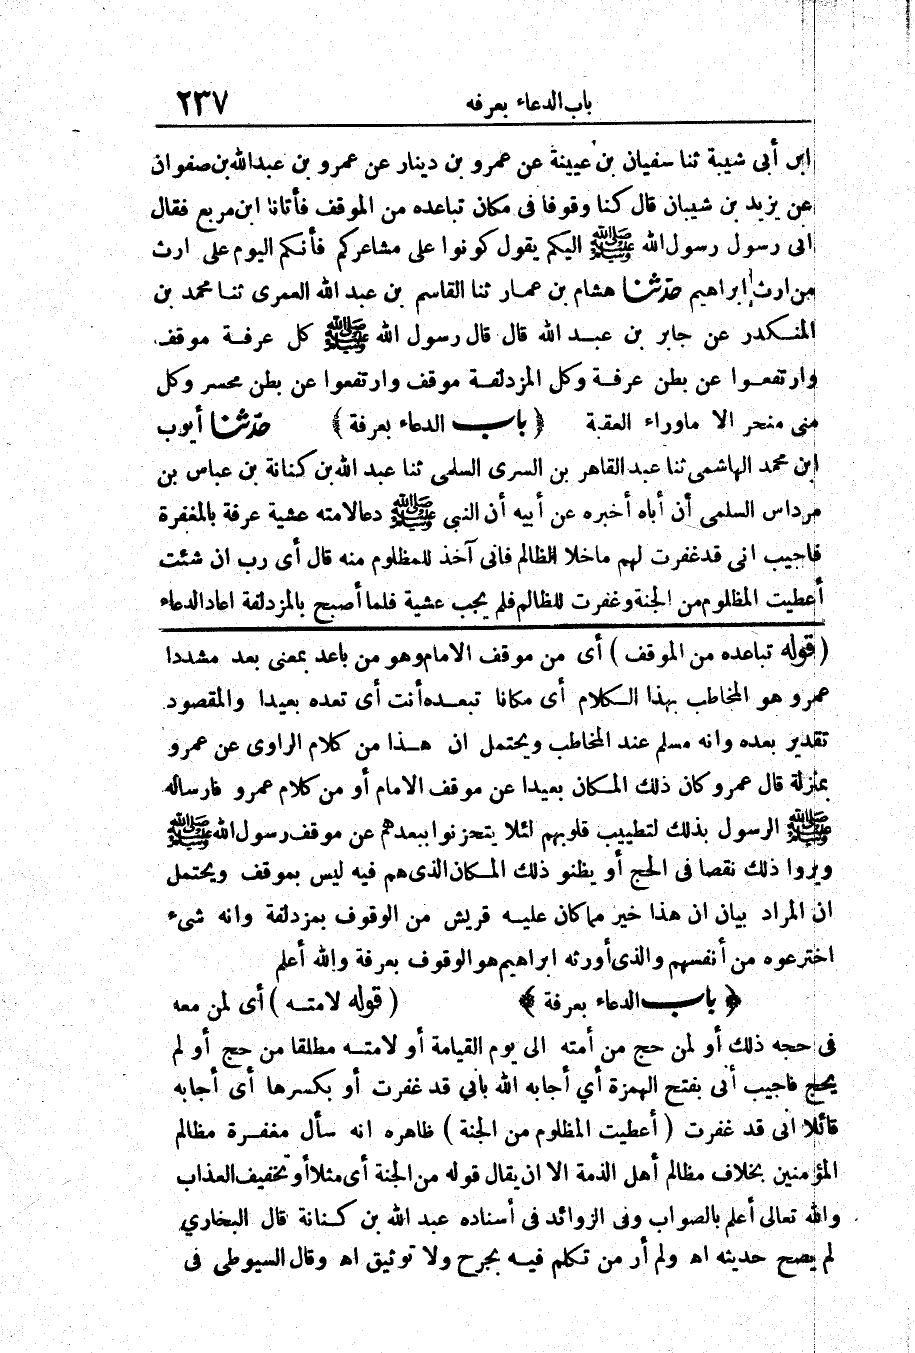 باب الدعاء بعرفه ٢٣٧
ابن أبى شيبة ثنا سفيان بن عيينة عن عمرو بن دينار عن عمرو بن عبدالله بن صفوان
عن يزيد بن شيبان قال كنا وقوفا فى مكان تباعده من الموقف فأتانا ابن مربع فقال
انى رسول رسول الله ﷺ اليكم يقول كونوا على مشاعركم فأنكم اليوم على ارث
من ارث ابراهيم حدثنا هشام بن عمار ثنا القاسم بن عبد الله العمرى ثنا محمد بن
المنكدر عن جابر بن عبد الله قال قال رسول الله ﷺ كل عرفة موقف
وارتفعوا عن بطن عرفة وكل المزدلفة موقف وارتفعوا عن بطن محسر وكل
منى منحر الا ماوراء العقبة ﴿ باب الدعاء بعرفة ﴾ حدثنا أيوب
ابن محمد الهاشمى ثنا عبد القاهر بن السرى السلمى ثنا عبد الله بن كنانة بن عباس بن
مرداس السلمى أن أباه أخبره عن أبيه أن النبى ﷺ دعا لامته عشية عرفة بالمغفرة
فاجيب انى قد غفرت لهم ماخلا الظالم فانى آخذ للمظلوم منه قال أى رب ان شئت
أعطيت المظلوم من الجنة وغفرت للظالم فلم يجب عشية فلما أصبح بالمزدلفة اعاد الدعاء
( قوله تباعده من الموقف ) أى من موقف الامام وهو من باعد بمعنى بعد مشددا
عمرو هو المخاطب بهذا الكلام أى مكانا تبعده أنت أى تعده بعيدا والمقصود
تقدير بعده وانه مسلم عند المخاطب ويحتمل ان هذا من كلام الراوى عن عمرو
بمنزلة قال عمرو كان ذلك المكان بعيدا عن موقف الامام أو من كلام عمرو فارساله
ﷺ الرسول بذلك لتطييب قلوبهم لئلا يتحزنوا ببعدهم عن موقف رسول الله ﷺ
ويروا ذلك نقصا فى الحج أو يظنو ذلك المكان الذى هم فيه ليس بموقف ويحتمل
ان المراد بيان ان هذا خير مما كان عليه قريش من الوقوف بمزدلفة وانه شىء
اخترعوه من أنفسهم والذى أورثه ابراهيم هو الوقوف بعرفة والله أعلم
﴿ باب الدعاء بعرفة ﴾ ( قوله لامته ) أى لمن معه
فى حجه ذلك أو لمن حج من أمته الى يوم القيامة أو لامته مطلقا من حج أو لم
يحج فاجيب أنى بفتح الهمزة أي أجابه الله بانى قد غفرت أو بكسرها أى أجابه
قائلا انى قد غفرت ( أعطيت المظلوم من الجنة ) ظاهره انه سأل مغفرة مظالم
المؤمنين بخلاف مظالم أهل الذمة الا ان يقال قوله من الجنة أى مثلا أو تخفيف العذاب
والله تعالى أعلم بالصواب وفى الزوائد فى أسناده عبد الله بن كنانة قال البخاري
لم يصح حديثه اه ولم أر من تكلم فيه بجرح ولا توثيق اه وقال السيوطى فى